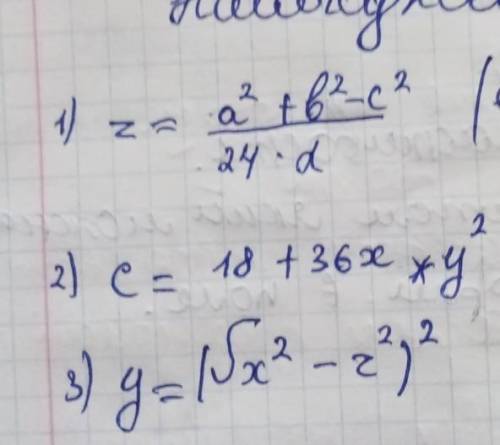 1) z = (a² + b² - c²) / (24 · d)
2) c = 18 + 36x * y²
3) y = (√x² - z²)²